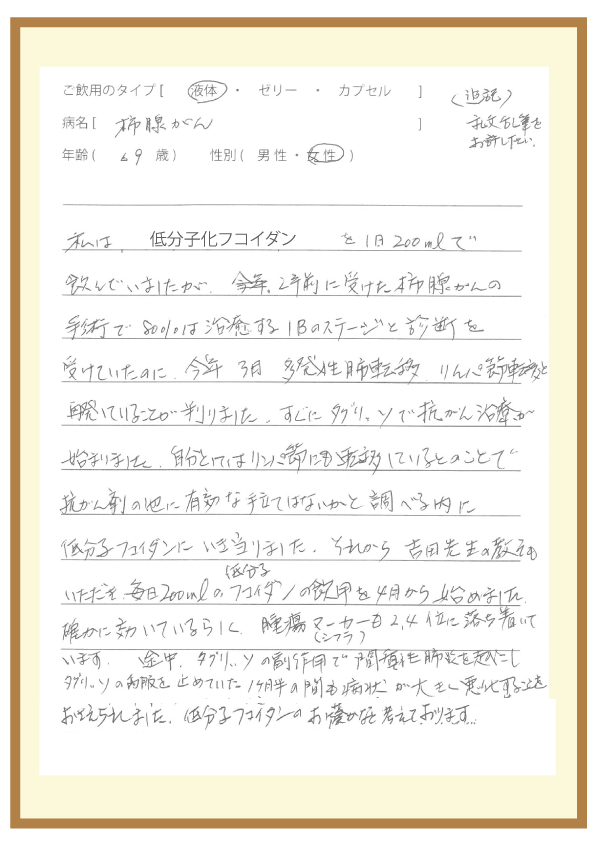 ご飲用のタイプ [ 液体 ・ ゼリー ・ カプセル ]
(追記)
病名 [ 肺腺がん ]
乱文乱筆を
お許し下さい。
年齢 ( 69 歳 ) 性別 ( 男性 ・ 女性 )
私は、低分子化フコイダン を1日200mlで
飲んでいましたが、今年、2年前に受けた肺腺がんの
手術で80%は治癒する1Bのステージと診断を
受けていたのに、今年3月 多発性肺転移、リンパ節転移と
再発していることが判りました。すぐにタグリッソで抗がん治療が
始まりました。自分としてはリンパ節にも転移しているとのことで
抗がん剤の他に有効な手立てはないかと調べる内に
低分子フコイダンにいき当りました。それから 吉田先生の教えも
いただき、毎日200mlの低分子フコイダンの飲用を4月から始めました。
確かに効いているらしく、腫瘍マーカーも2,4位に落ち着いて
(シフラ)
います。 途中、タグリッソの副作用で間質性肺炎を起こし
タグリッソの内服を止めていた1ヶ月半の間も病状が大きく悪化することを
おさえられました。低分子フコイダンのお陰かなと考えております。